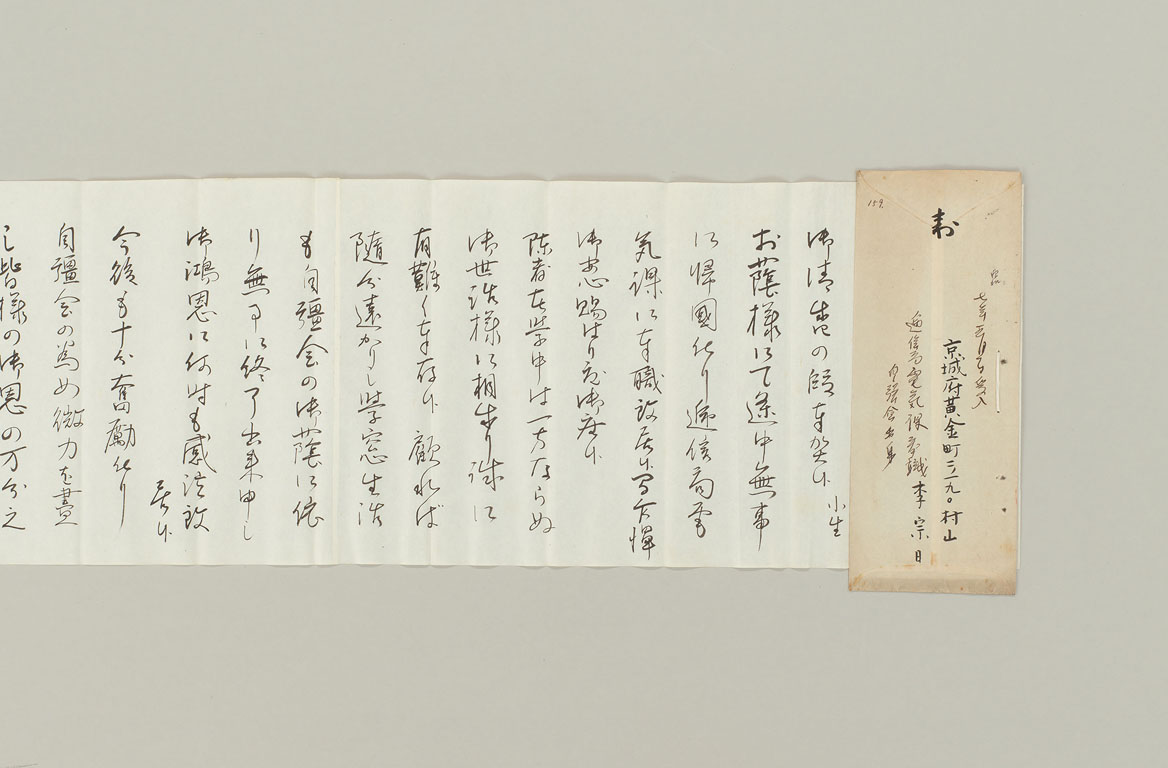 御清書の段奉賀候 小生
お蔭様にて途中無事
に帰國仕り逓信局電
気課に奉職致居候間乍憚
御安心賜はり度御座候
陳者在学中は一方ならぬ
御世話様に相成り誠に
有難く奉存候 顧れば
随分遠かりし学窓生活
も自彊会の御蔭に依
り無事に終了出来申し
御鴻恩に何時も感泣致
居候
今後も十分奮励仕り
自彊会の為め微力を盡
し皆様の御恩の万分之
159.
京城府黄金町三ノ九〇村山
逓信局電気課奉職 李宗日
自彊会出身